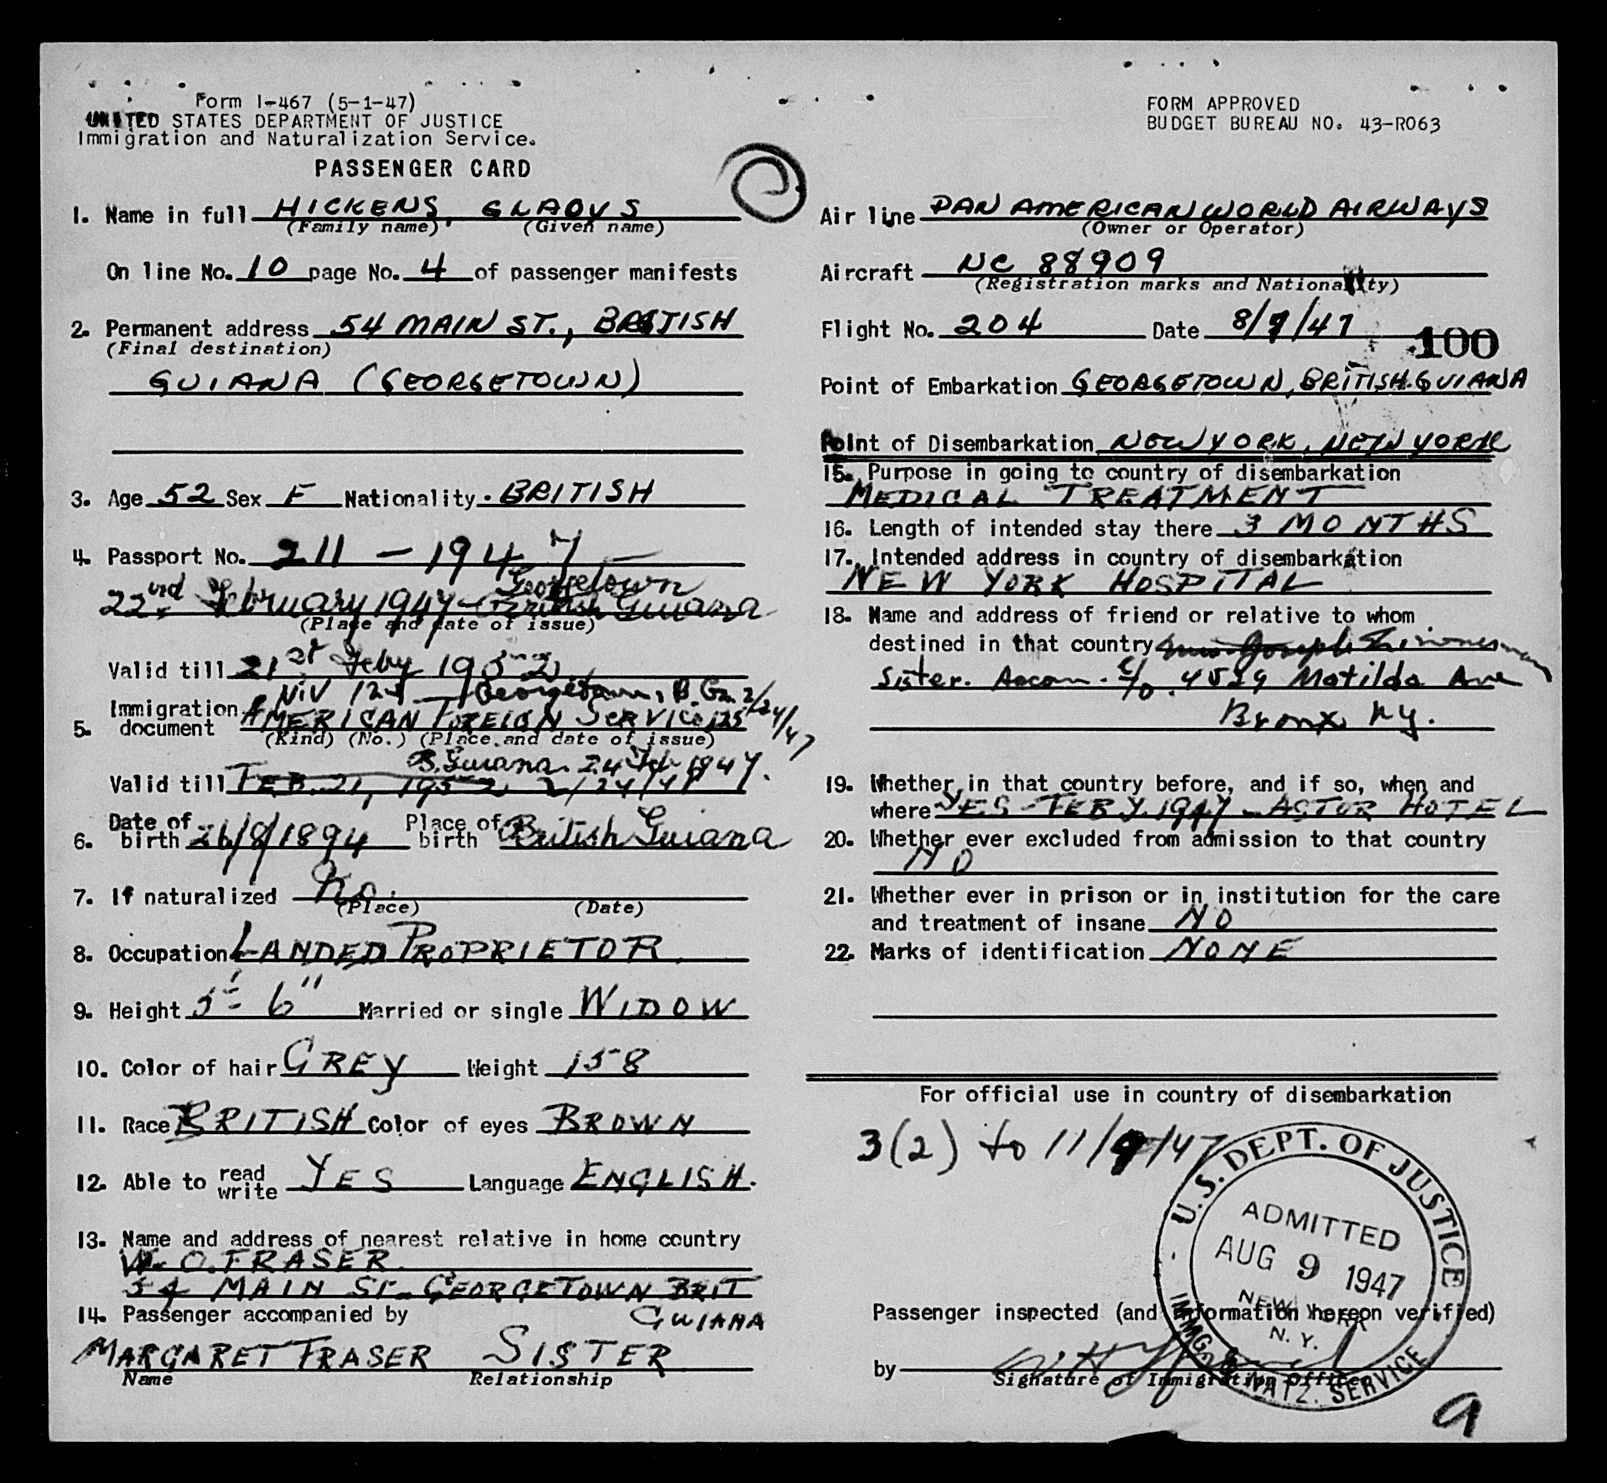 Form I-467 (5-1-47)
UNITED STATES DEPARTMENT OF JUSTICE
Immigration and Naturalization Service.
PASSENGER CARD
1. Name in full HICKENS, GLADYS
(Family name) (Given name)
On line No. 10 page No. 4 of passenger manifests
2. Permanent address 54 MAIN ST., BRITISH
(Final destination)
GUIANA (GEORGETOWN)
3. Age 52 Sex F Nationality. BRITISH
4. Passport No. 211 - 1947 -
Georgetown
22nd February 1947 - British Guiana
(Place and date of issue)
Valid till 21st Feby 1952
NIV 125 Georgetown, B. G. 2/24/47
5. Immigration document AMERICAN FOREIGN SERVICE 125
(Kind) (No.) (Place and date of issue)
B. Guiana. 24 Feb 1947.
Valid till FEB. 21, 1952 2/24/47
6. Date of birth 26/8/1894 Place of birth British Guiana
7. If naturalized No.
(Place) (Date)
8. Occupation LANDED PROPRIETOR
9. Height 5' 6" Married or single WIDOW
10. Color of hair GREY Weight 158
11. Race BRITISH Color of eyes BROWN
12. Able to read write YES Language ENGLISH.
13. Name and address of nearest relative in home country
W. O. FRASER
54 MAIN ST. GEORGETOWN BRIT
GUIANA
14. Passenger accompanied by
MARGARET FRASER SISTER
Name Relationship
FORM APPROVED
BUDGET BUREAU NO. 43-R063
Air line PAN AMERICAN WORLD AIRWAYS
(Owner or Operator)
Aircraft NC 88909
(Registration marks and Nationality)
Flight No. 204 Date 8/9/47
100
Point of Embarkation GEORGETOWN, BRITISH GUIANA
Point of Disembarkation NEW YORK, NEW YORK
15. Purpose in going to country of disembarkation
MEDICAL TREATMENT
16. Length of intended stay there 3 MONTHS
17. Intended address in country of disembarkation
NEW YORK HOSPITAL
18. Name and address of friend or relative to whom
destined in that country Joseph
Sister. Accom. c/o. 4529 Matilda Ave
Bronx Ny.
19. Whether in that country before, and if so, when and
where YES - FEBY. 1947 - ASTOR HOTEL
20. Whether ever excluded from admission to that country
NO
21. Whether ever in prison or in institution for the care
and treatment of insane NO
22. Marks of identification NONE
For official use in country of disembarkation
3(2) to 11/9/47
U.S. DEPT. OF JUSTICE
ADMITTED
AUG 9 1947
NEW YORK
N. Y.
IMMG. & NATZ. SERVICE
Passenger inspected (and information hereon verified)
by
Signature of Immigration Officer
9